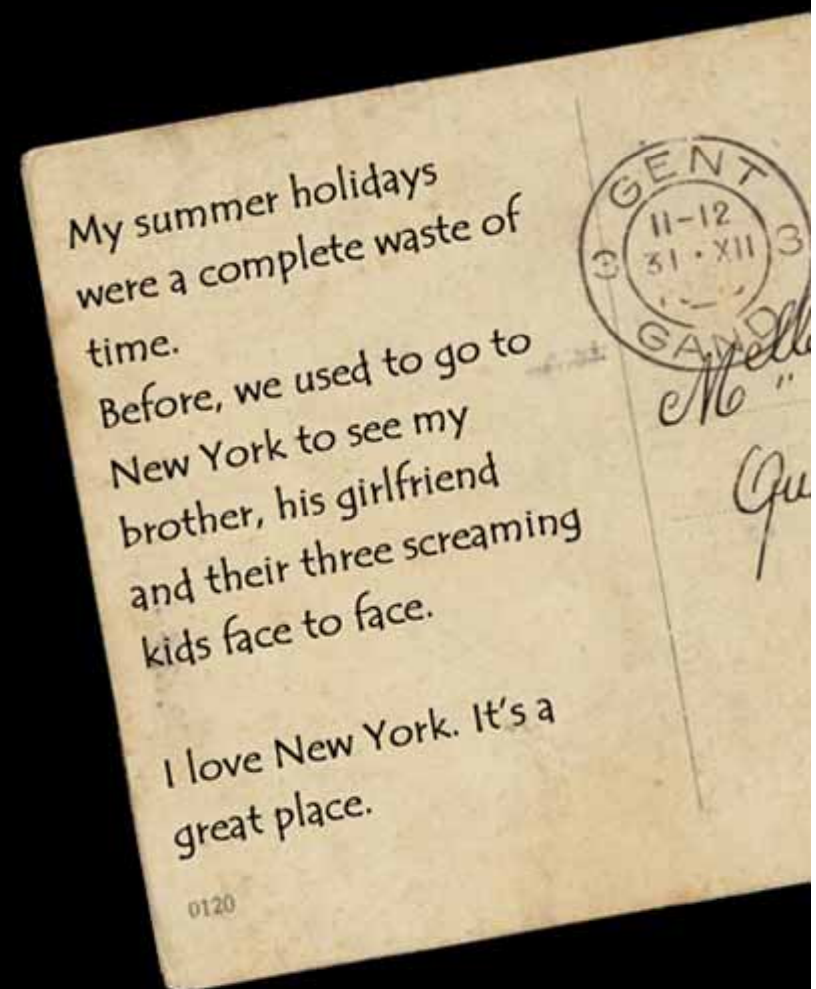 My summer holidays
were a complete waste of
time.
Before, we used to go to
New York to see my
brother, his girlfriend
and their three screaming
kids face to face.
I love New York. It's a
great place.
0120
GENT
11-12
3 31 · XII 3
GAND